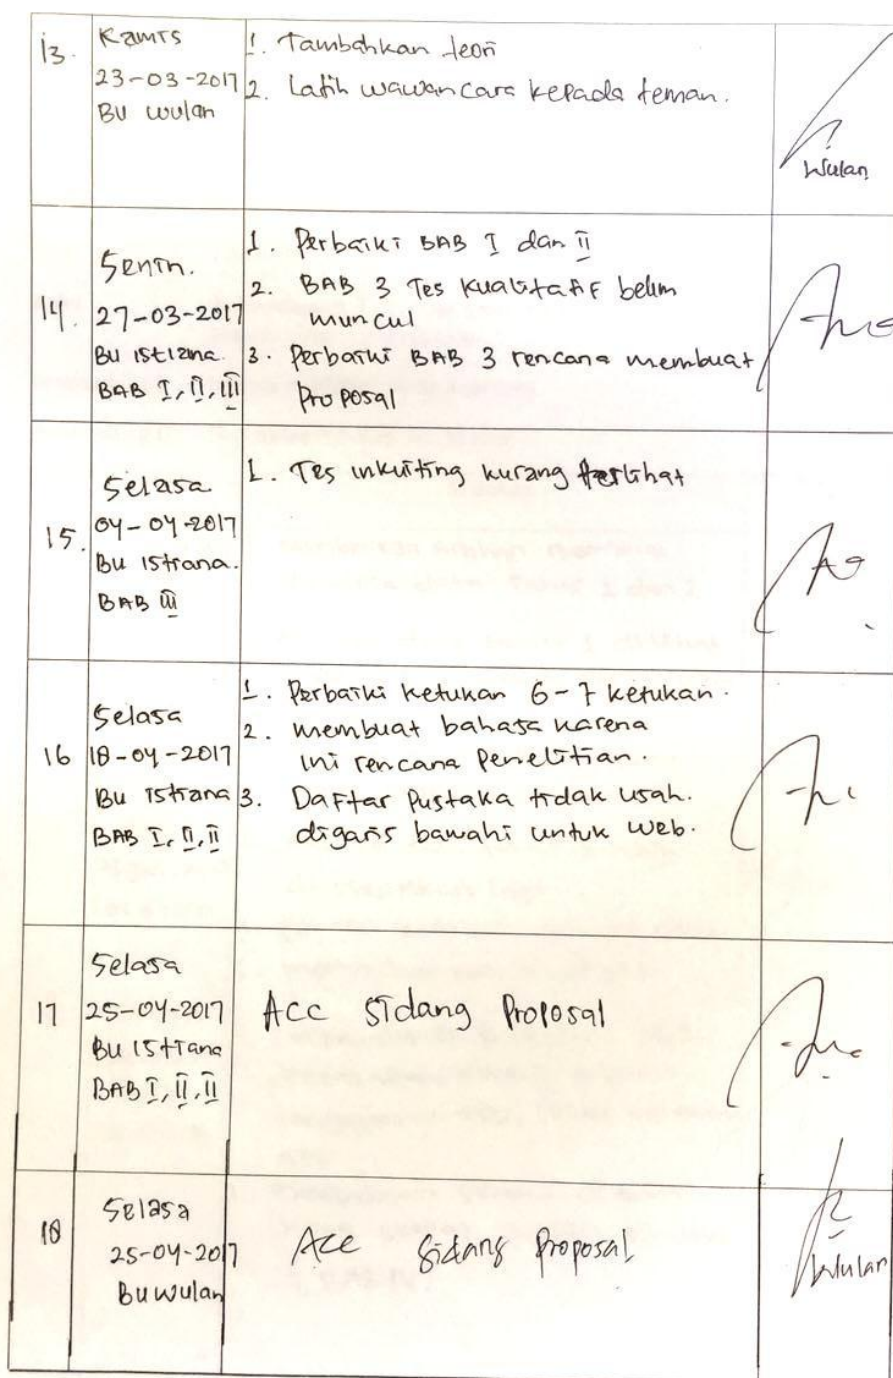 13. Kamis
23-03-2017
Bu wulan
1. Tambahkan teori
2. Latih wawancara kepada teman.
Wulan
14. Senin.
27-03-2017
Bu istiana.
BAB I, II, III
1. Perbaiki BAB I dan II
2. BAB 3 Tes Kualitatif belum
muncul
3. Perbaiki BAB 3 rencana membuat
Proposal
15. Selasa
04-04-2017
Bu istiana.
BAB III
1. Tes inkuiting kurang terlihat
16 Selasa
18-04-2017
Bu istiana
BAB I, II, II
1. Perbaiki ketukan 6-7 ketukan.
2. membuat bahasa karena
ini rencana Penelitian.
3. Daftar Pustaka tidak usah.
digaris bawahi untuk web.
17 Selasa
25-04-2017
Bu istiana
BAB I, II, II
Acc Sidang Proposal
18 Selasa
25-04-2017
Bu wulan
Acc Sidang Proposal
Wulan